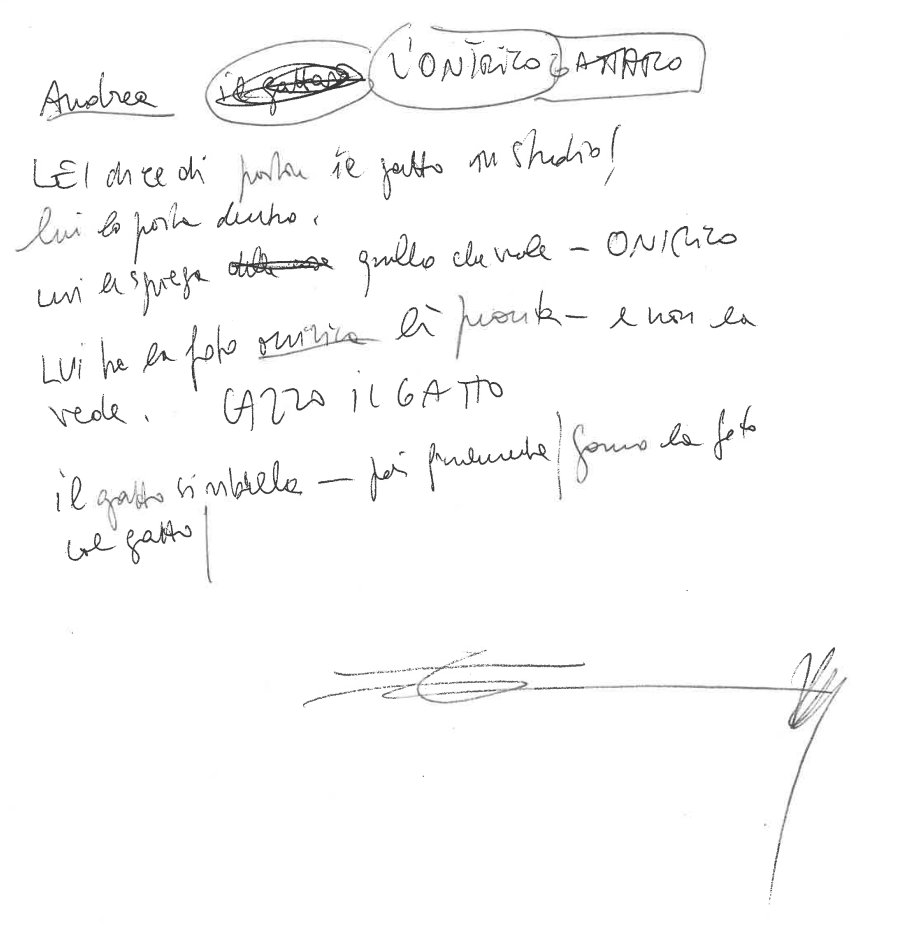 Andrea il gattaro L'ONIRICO GATTARO
LEI dice di portare il gatto in studio!
lui lo porta dentro.
lui le spiega quello che vole - ONIRICO
LUI ha la foto onirica lì pronta - e non la
vede. CAZZO IL GATTO
il gatto si ribella - poi finalmente / fanno la foto
col gatto /